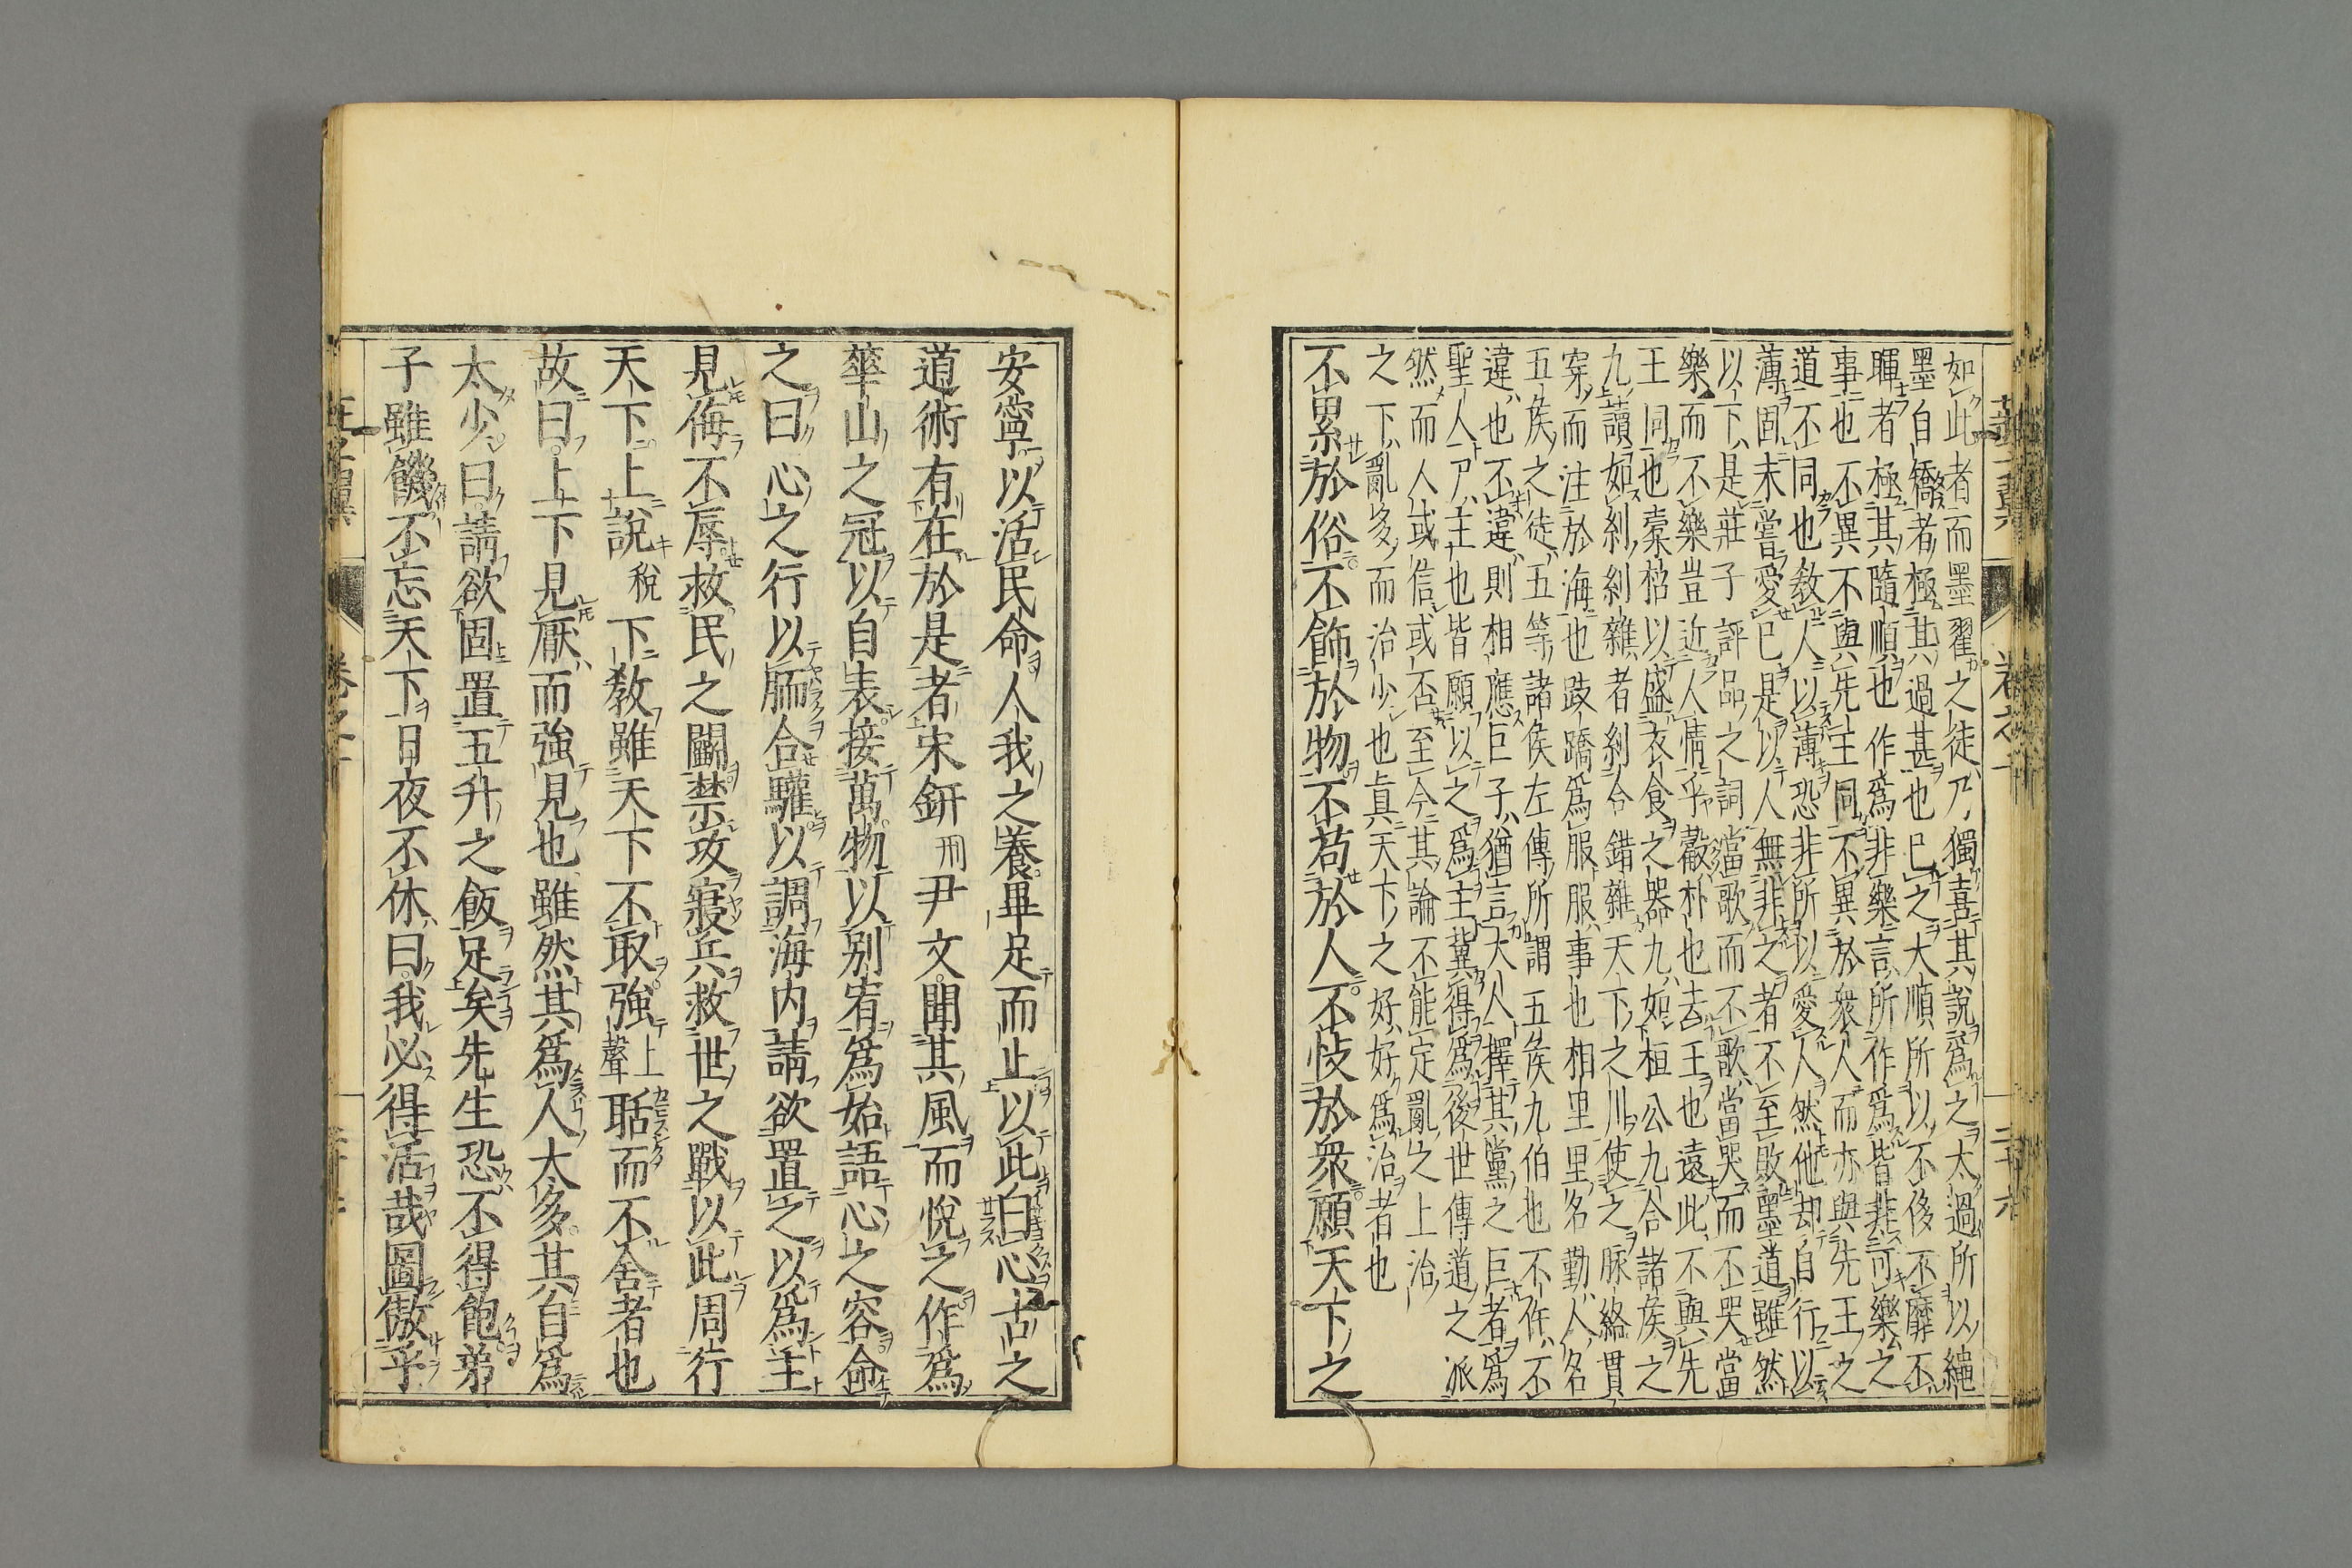 如此者而墨翟之徒乃獨喜其說爲之太過所以繩
墨自矯者極其過甚也已之大順所以不侈不靡不
暉者極其隨順也作爲非樂言所作爲皆非可樂之
事也不異不與先王同不異於衆人而亦與先王之
道不同也教人以薄恐非所以愛人然他却自行以
薄固未嘗愛已是以人無非之者不至敗墨道雖然
以下是莊子評品之詞當歌而不歌當哭而不哭當
樂而不樂豈近人情乎觳朴也去王也遠此不與先
王同也橐枱以盛衣食之器九如桓公九合諸侯之
九讀如糾糾雜者糾合錯雜天下之川使之脉絡貫
穿而注於海也跂蹻爲服服事也相里里名勤人名
五侯之徒五等諸侯左傳所謂五侯九伯也不仵不
違也不違則相應巨子猶言大人擇其黨之巨者爲
聖人一ア主也皆願以之爲主冀得爲後世傳道之派
然而人或信或否至今其論不能定亂之上治
之下亂多而治少也眞天下之好好爲治者也
不累於俗不飾於物不苟於人不忮於衆願天下之
安寧以活民命人我之養畢足而止以此白心古之
道術有在於是者宋鈃刑尹文聞其風而悅之作爲
華山之冠以自表接萬物以別宥爲始語心之容命
之曰心之行以胹合驩以調海內請欲置之以爲主
見侮不辱救民之鬭禁攻寢兵救世之戰以此周行
天下上說稅下教雖天下不取強上聲聒而不舍者也
故曰上下見厭而強見也雖然其爲人太多其自爲
太少曰請欲固置五升之飯足矣先生恐不得飽弟
子雖饑不忘天下日夜不休曰我必得活哉圖傲乎